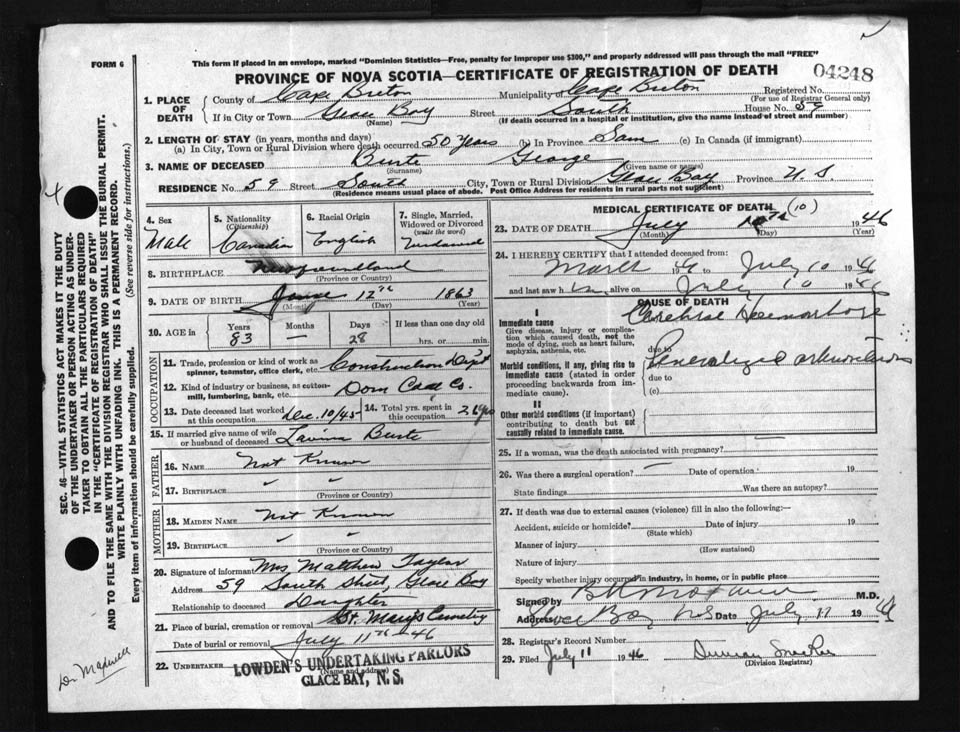 FORM 6
This form if placed in an envelope, marked "Dominion Statistics—Free, penalty for improper use $300," and properly addressed will pass through the mail "FREE"
PROVINCE OF NOVA SCOTIA—CERTIFICATE OF REGISTRATION OF DEATH
04248
1. PLACE OF DEATH
County of Cape Breton Municipality of Cape Breton Registered No.
(For use of Registrar General only)
If in City or Town Glace Bay Street South House No. 59
(Name) (If death occurred in a hospital or institution, give the name instead of street and number)
2. LENGTH OF STAY (in years, months and days)
(a) In City, Town or Rural Division where death occurred 50 years (b) In Province Same (c) In Canada (if immigrant)
3. NAME OF DECEASED George
(Surname) (Given name or names)
RESIDENCE No. 59 Street South City, Town or Rural Division Glace Bay Province N. S.
(Residence means usual place of abode. Post Office Address for residents in rural parts not sufficient)
4. Sex
Male
5. Nationality
(Citizenship)
Canadian
6. Racial Origin
English
7. Single, Married, Widowed or Divorced
(write the word)
8. BIRTHPLACE Newfoundland
(Province or Country)
9. DATE OF BIRTH 12th 1863
(Month) (Day) (Year)
10. AGE in
Years Months Days If less than one day old
83 — 28 hrs. or min.
OCCUPATION
11. Trade, profession or kind of work as spinner, teamster, office clerk, etc. Construction Dept
12. Kind of industry or business, as cotton-mill, lumbering, bank, etc. Dom Coal Co.
13. Date deceased last worked at this occupation Dec. 10/45
14. Total yrs. spent in this occupation 26 yrs
15. If married give name of wife or husband of deceased
FATHER
16. NAME Not Known
17. BIRTHPLACE
(Province or Country)
MOTHER
18. MAIDEN NAME Not Known
19. BIRTHPLACE
(Province or Country)
20. Signature of informant Mrs Matthew Taylor
Address 59 South Street, Glace Bay
Relationship to deceased Daughter
21. Place of burial, cremation or removal St. Mary's Cemetery
Date of burial or removal July 11th - 46
22. UNDERTAKER LOWDEN'S UNDERTAKING PARLORS
(Name and address)
GLACE BAY, N. S.
MEDICAL CERTIFICATE OF DEATH (10)
23. DATE OF DEATH July 10th 1946
(Month) (Day) (Year)
24. I HEREBY CERTIFY that I attended deceased from:
March 1946 to July 10 1946
and last saw him alive on July 10 1946
CAUSE OF DEATH
I
Immediate cause Cerebral Haemorrhage
Give disease, injury or complication which caused death, not the mode of dying, such as heart failure, asphyxia, asthenia, etc.
due to Generalized
Morbid conditions, if any, giving rise to immediate cause (stated in order proceeding backwards from immediate cause).
due to
(c)
II
Other morbid conditions (if important) contributing to death but not causally related to immediate cause.
25. If a woman, was the death associated with pregnancy?
26. Was there a surgical operation? — Date of operation 19
State findings Was there an autopsy?
27. If death was due to external causes (violence) fill in also the following:—
Accident, suicide or homicide? Date of injury 19
(State which)
Manner of injury
(How sustained)
Nature of injury
Specify whether injury occurred in industry, in home, or in public place
Signed by M.D.
Address Glace Bay N.S. Date July 11 1946
28. Registrar's Record Number
29. Filed July 11 1946 Duncan
(Division Registrar)
SEC. 46—VITAL STATISTICS ACT MAKES IT THE DUTY
OF THE UNDERTAKER OR PERSON ACTING AS UNDER-
TAKER TO OBTAIN ALL THE PARTICULARS REQUIRED
IN THE "CERTIFICATE OF REGISTRATION OF DEATH"
AND TO FILE THE SAME WITH THE DIVISION REGISTRAR WHO SHALL ISSUE THE BURIAL PERMIT.
WRITE PLAINLY WITH UNFADING INK. THIS IS A PERMANENT RECORD.
Every item of information should be carefully supplied. (See reverse side for instructions.)
Dr Maxwell